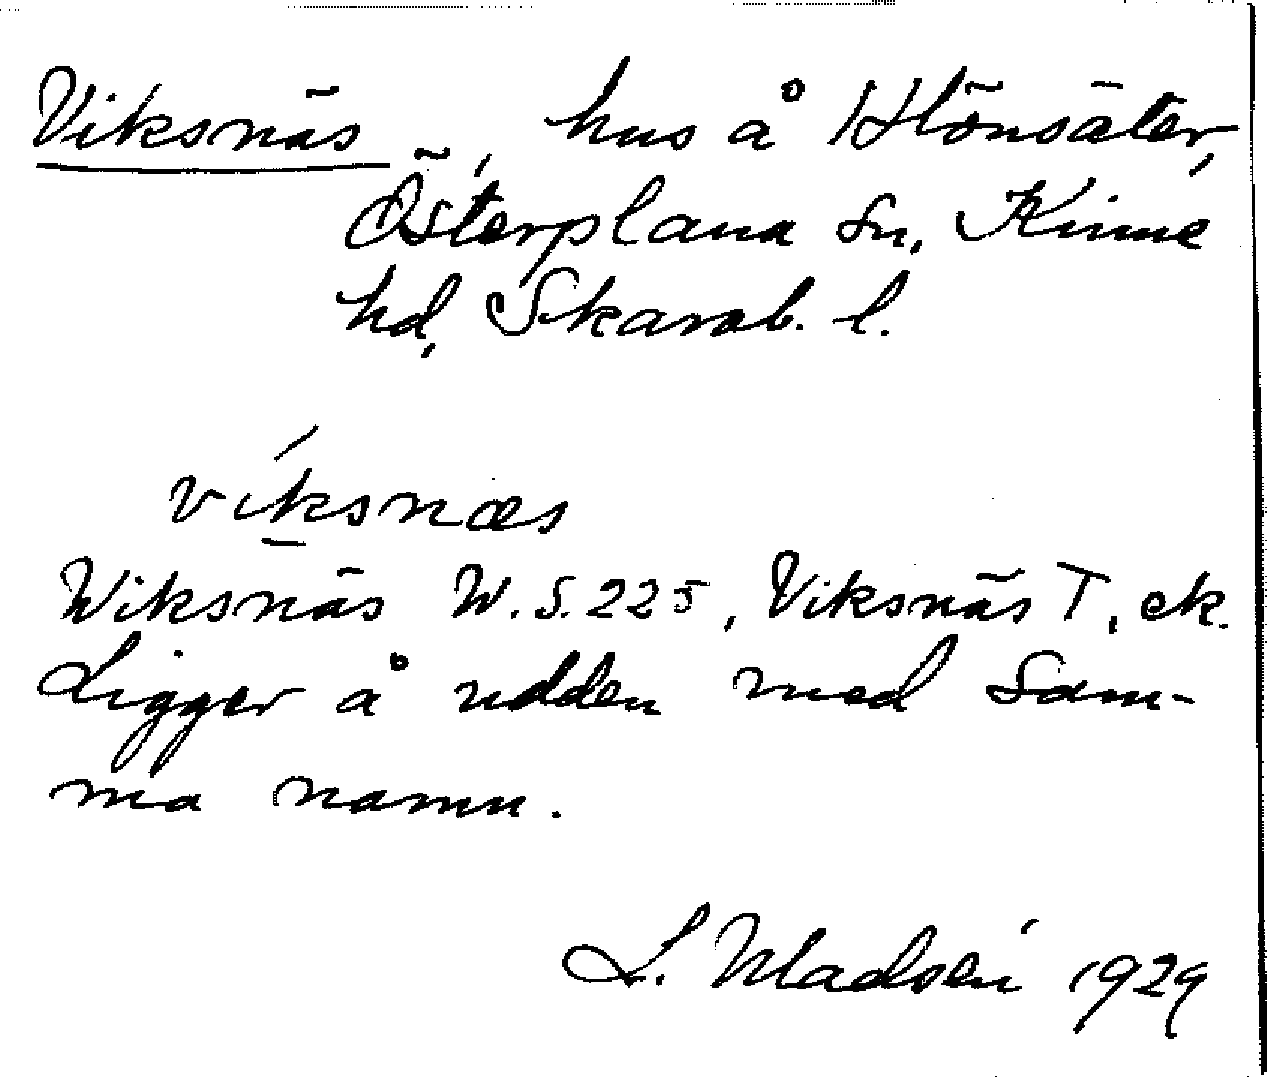 Viksnäs, hus å Hönsäter,
Österplana sn, Kinne
hd, Skarab. l.
víksnæs
Wiksnäs W. S. 225, Viksnäs T, ek.
Ligger å udden med sam-
ma namn.
L. Madsén 1929